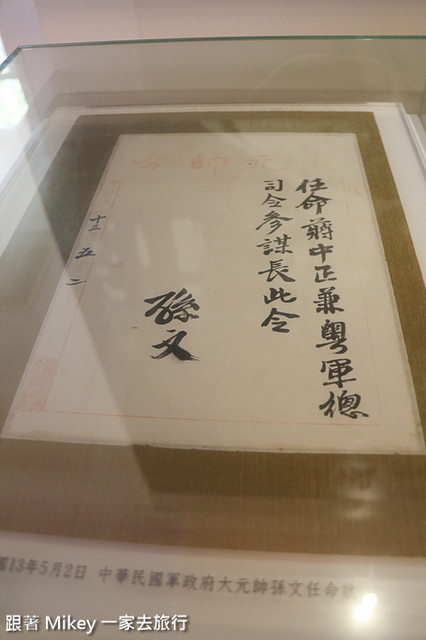 大元帥令
任命蔣中正兼粵軍總
司令參謀長此令
孫文
十三 五 二
國13年5月2日 中華民國軍政府大元帥孫文任命
跟著 Mikey 一家去旅行